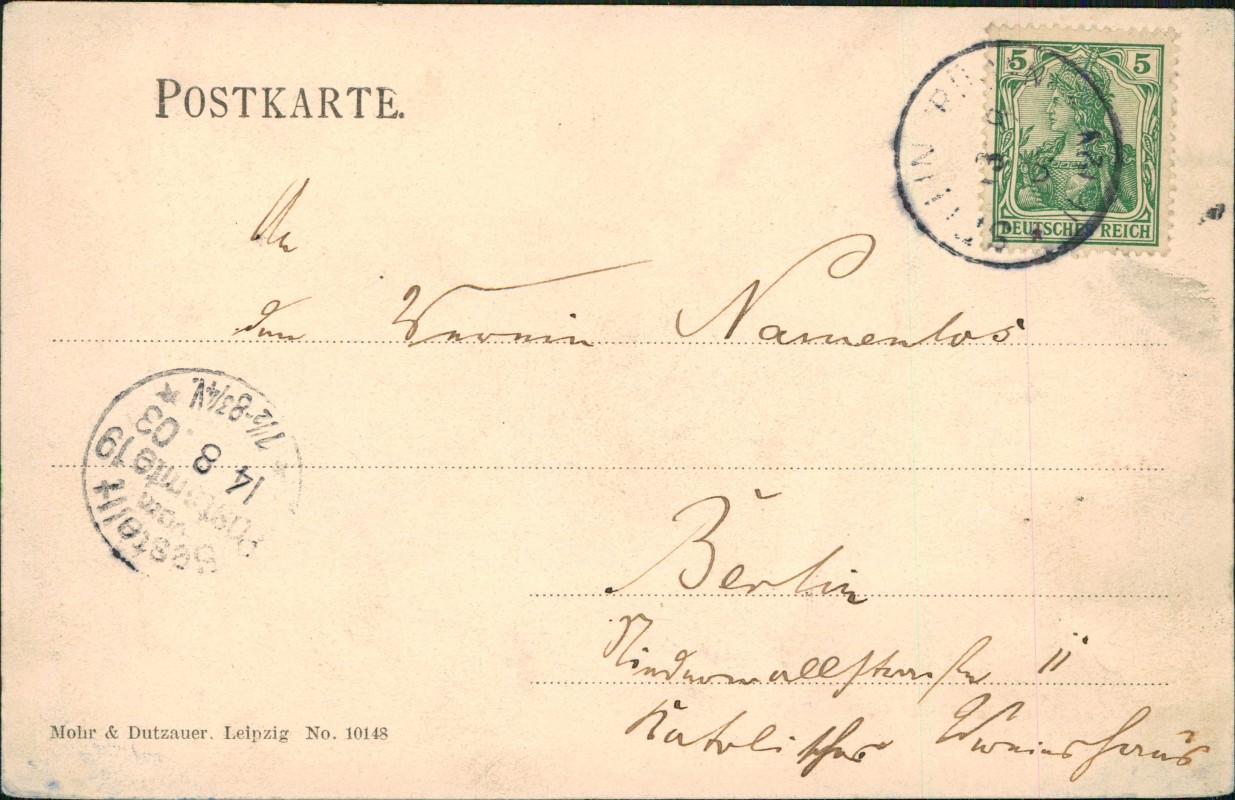 POSTKARTE.
5 5
DEUTSCHES REICH
An
den Verein Namenlos
Bestellt
vom
Postamte 19
14 8 03
7½-8¾N.
Berlin
Niederwallstraße 11
Katolisches Vereinshaus
Mohr & Dutzauer. Leipzig No. 10148